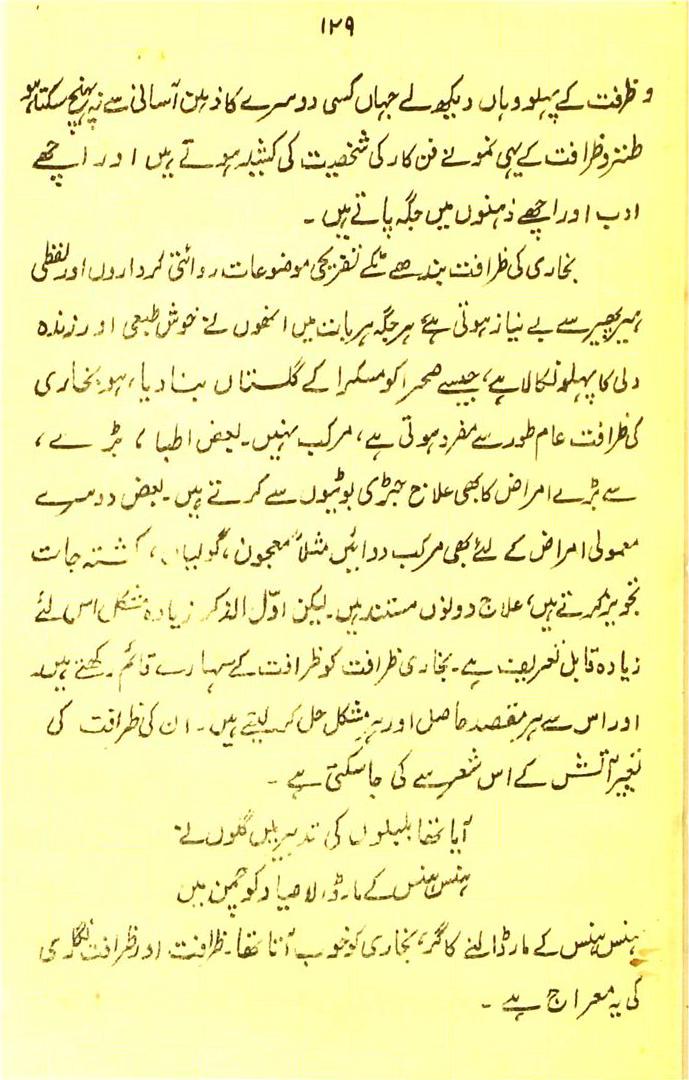 ۱۲۹
و ظرافت کے پہلو وہاں دیکھ لے جہاں کسی دوسرے کا ذہین آسانی سے نہ پہنچ سکتا ہو
طنز و ظرافت کے یہی نمونے فن کار کی شخصیت کی کشید ہوتے ہیں اور اچھے
ادب اور اچھے ذہنوں میں جگہ پاتے ہیں ۔
بخاری کی ظرافت بندھے ٹکے تفریحی موضوعات روائتی کرداروں اور لفظی
ہیر پھیر سے بے نیاز ہوتی ہے، ہر جگہ ہر بات میں انھوں نے خوش طبعی اور زندہ
دلی کا پہلو نکالا ہے، جیسے صحرا کو مسکرا کے گلستاں بنا دیا ہو، بخاری
کی ظرافت عام طور سے مفرد ہوتی ہے، مرکب نہیں۔ بعض اطبا، بڑے،
سے بڑے امراض کا بھی علاج جڑی بوٹیوں سے کرتے ہیں۔ بعض دوسرے
معمولی امراض کے لئے بھی مرکب دوائیں مثلاً معجون، گولیاں، کشتہ جات
تجویز کرتے ہیں، علاج دونوں مستند ہیں۔ لیکن اوّل الذکر زیادہ مشکل اس لئے
زیادہ قابل تعریف ہے۔ بخاری ظرافت کو ظرافت کے سہارے قائم رکھتے ہیں۔
اور اس سے ہر مقصد حاصل اور ہر مشکل حل کر لیتے ہیں۔ ان کی ظرافت کی
تعبیر آتش کے اس شعر سے کی جا سکتی ہے ۔
آیا تھا بلبلوں کی تدبیر میں گلوں نے
ہنس ہنس کے مار ڈالا صیاد کو چمن میں
ہنس ہنس کے مار ڈالنے کا گر، بخاری کو خوب آتا تھا۔ ظرافت اور ظرافت نگاری
کی یہ معراج ہے ۔